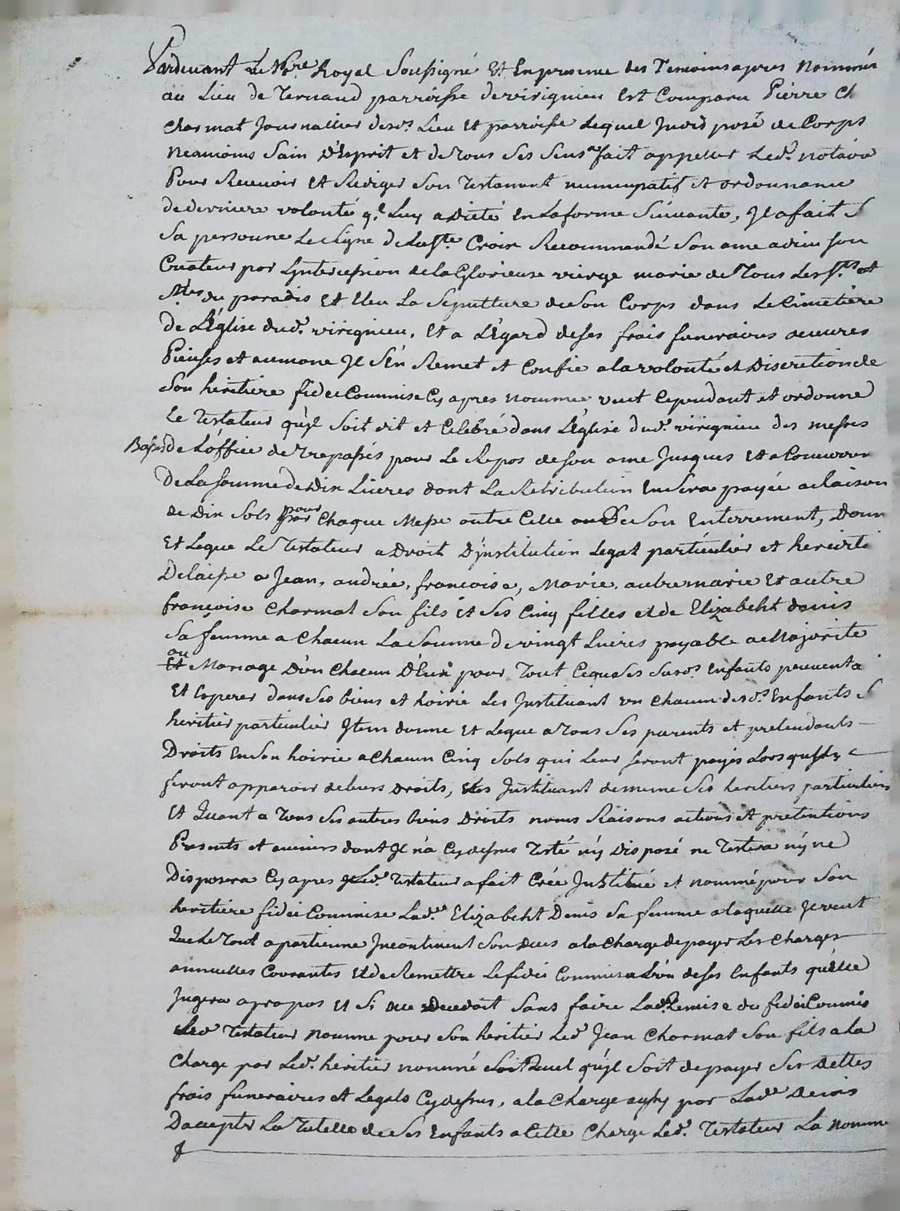 Pardevant Le Nre Royal Soussigné Et En presence des Temoins apres Nommés
au Lieu de Ternaud parroisse de virignieu Est Comparu Pierre
Charmat Journallier desds. Lieu Et parroisse Lequel Indisposé de Corps
Neamoins Sain D'Esprit et de Tous Ses Sens a fait appeller Led. notaire
Pour Recevoir Et Rediger Son Testament nuncupatif et ordonnance
de derniere volonté q.l Luy a dicté En la forme Suivante, Il a fait S
Sa personne Le Signe de La Ste Croix Recommandé Son ame a dieu Son
Createur par L'yntercession de la Glorieuse vierge marie de Tous Les Sts et
Stes du paradis Et Eleu La Sepulture de Son Corps dans Le Cimetiere
de L'Eglise dud. virignieu, Et a L'égard de ses frais funeraires oeuvres
Pieuses et aumone Il S'en Remet et Confie a la volonté et Discretion de
Son heritiere fideiCommise Cy apres nommée veut Cependant et ordonne
Le Testateur qu'yl Soit dit et Celebré dans L'Eglise dud. virignieu des messes
Basses de L'office de Trepassés pour Le Repos de Son ame Jusques Et a Concurren
De La Somme de Dix Livres dont La Retribution En Sera payée a Raison
de Dix Sols pour Chaque Messe outre Celle de Son Enterrement, Donn
Et Legue Le Testateur a Droit D'ynstitution Legat particulier et
Delaisse a Jean, andrée, francoise, Marie, autre marie Et autre
françoise Charmat Son fils Et Ses Cinq filles et de Elizabeht denis
Sa femme a Chacun La Somme de vingt Livres payable a Majorité
ou
Et Mariage D'un Chacun D'Eux pour Tout Ce que Ses susds. Enfants peuvent a
Et Esperer dans Ses biens et hoirie Les Instituant un Chacun desds. Enfants S
heritier particulier Item donne Et Legue a Tous Ses parents et pretendants
Droits En Son hoirie a Chacun Cinq Sols qui Leur Seront payés Lors qu'yls
feront apparoir de Leurs Droits, Les Instituant de meme Ses heritiers particuliers
Et Quant a Tous Ses autres biens Droits noms Raisons actions et pretentions
Presents et avenirs dont Il n'a Cy dessus Testé n'y Disposé ne Testera n'y ne
Disposera Cy apres Led. Testateur a fait Créé Institué et nommé pour Son
heritiere fideiCommise Lade. Elizabeht Denis Sa femme a laquelle Je veut
Que Le Tout apartienne Incontinent Son deces a la Charge de payer Les Charges
annuelles Courantes Et de Remettre Le fidei Commis a L'un de Ses Enfants qu'elle
Jugera apropos Et Si Elle Decedoit Sans faire Lade. Remise du fideiCommis
Led. Testateur Nomme pour Son heritier Led. Jean Charmat Son fils a la
Charge par Led. heritier nommé quel qu'yl Soit de payer Ses dettes
frais funeraires et Legats Cy dessus, a la Charge aussy par Lade. Denis
D'accepter La Tutelle de Ses Enfants a Cette Charge Led. Testateur La nomme